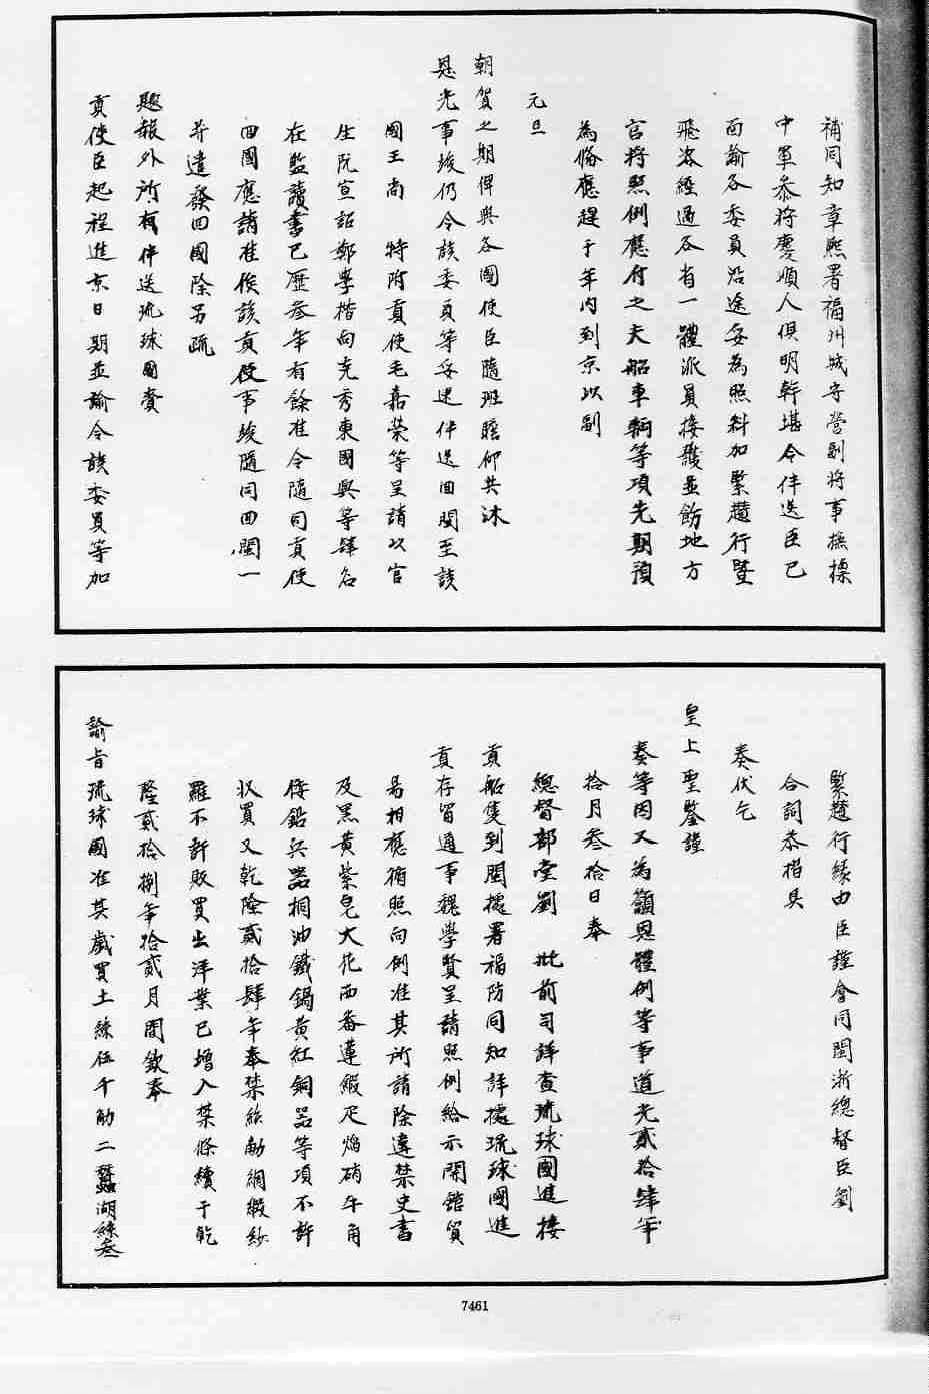 補同知章熙署福州城守營副將事撫標
中軍叅將慶順人俱明幹堪令伴送臣已
面諭各委員沿途妥為照料加緊趲行曁
飛咨經過各省一體派員接護並飭地方
官將照例應付之夫船車輌等項先期預
為備應趕于年內到京以副
元旦
朝賀之期俾與各國使臣隨班瞻仰共沐
恩光事竣仍令該委員等妥送伴送回閩至該
國王尚 特附貢使毛嘉榮等呈請以官
生阮宣詔鄭學楷向克秀東國興等肆名
在監讀書已歷叁年有餘准令隨同貢使
回國應請准俟該貢使事竣隨同回閩一
并遣發回國除另疏
題報外所有伴送琉球國賫
貢使臣起程進京日期並諭令該委員等加
緊趲行緣由臣謹會同閩浙總督臣劉
合詞恭摺具
奏伏乞
皇上聖鑒謹
奏等因又為籲恩體例等事道光貳拾肆年
拾月叁拾日奉
總督部堂劉 批前司詳查琉球國進接
貢船隻到閩據署福防同知詳據琉球國進
貢存留通事魏學賢呈請照例給示開館貿
易相應循照向例准其所請除違禁史書
及黑黃紫皂大花西番蓮緞疋焰硝牛角
倭鉛兵器桐油鐵鍋黃紅銅器等項不許
収買又乾隆貳拾肆年奉禁絲觔綢緞紗
羅不許販買出洋業已增入禁條續于乾
隆貳拾捌年拾貳月間欽奉
諭旨琉球國准其歲買土絲伍千觔二蠶湖絲叁
7461